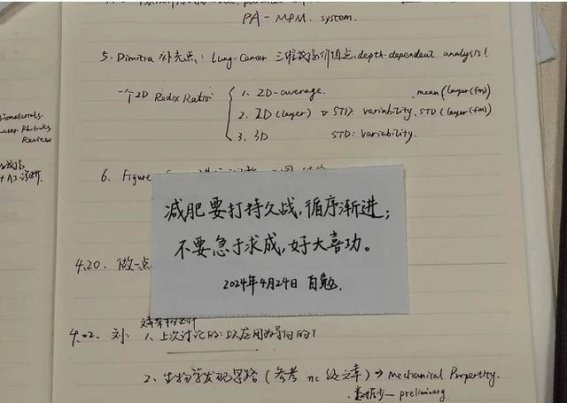 PA-MPM. system.
5. Dimitra 补充点: Lung-Cancer 三维成像价值点. depth-dependent analysis!
一个2D Redox Ratio:
1. 2D-average. mean(layer(fm))
2. 2D(layer) STD variability. STD(layer(fm))
3. 3D STD: variability.
6. Figure
减肥要打持久战,循序渐进;
不要急于求成,好大喜功。
2024年4月24日 自勉.
4.20. 做一点
4.22. 刘: 1. 上次讨论的: 以应用为导向的!
2. 生物学发现思路 (参考 nc 级文章) → Mechanical Propertity.
preliminary